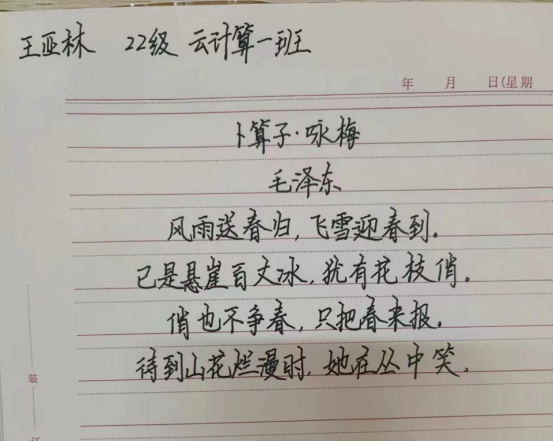 王亚林 22级 云计算一班
年 月 日(星期
卜算子·咏梅
毛泽东
风雨送春归,飞雪迎春到。
已是悬崖百丈冰,犹有花枝俏。
俏也不争春,只把春来报。
待到山花烂漫时,她在丛中笑。
装